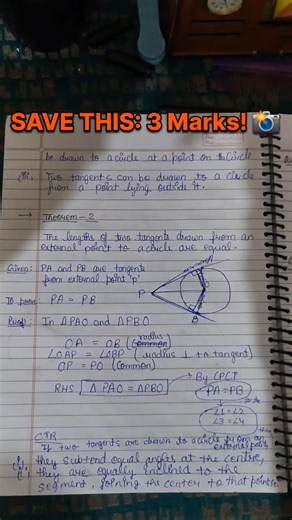 SAVE THIS: 3 Marks! 📸
be drawn to a circle at a point on the circle
Two tangents can be drawn to a circle
from a point lying outside it.
→ Theorem-2
The lengths of two tangents drawn from an
external point to a circle are equal.
Given: PA and PB are tangents
from external point 'p'
To prove PA = PB
Proof: In ΔPAO and ΔPBO
OA = OB (radius)
∠OAP = ∠OBP (radius ⊥ to tangent)
OP = PO (common)
RHS ΔPAO ≅ ΔPBO
By CPCT
PA = PB
∠1 = ∠2
∠3 = ∠4
P
B
If two tangents are drawn to a circle from an
external point
they subtend equal angles at the centre,
they are equally inclined to the
segment, joining the center to that point